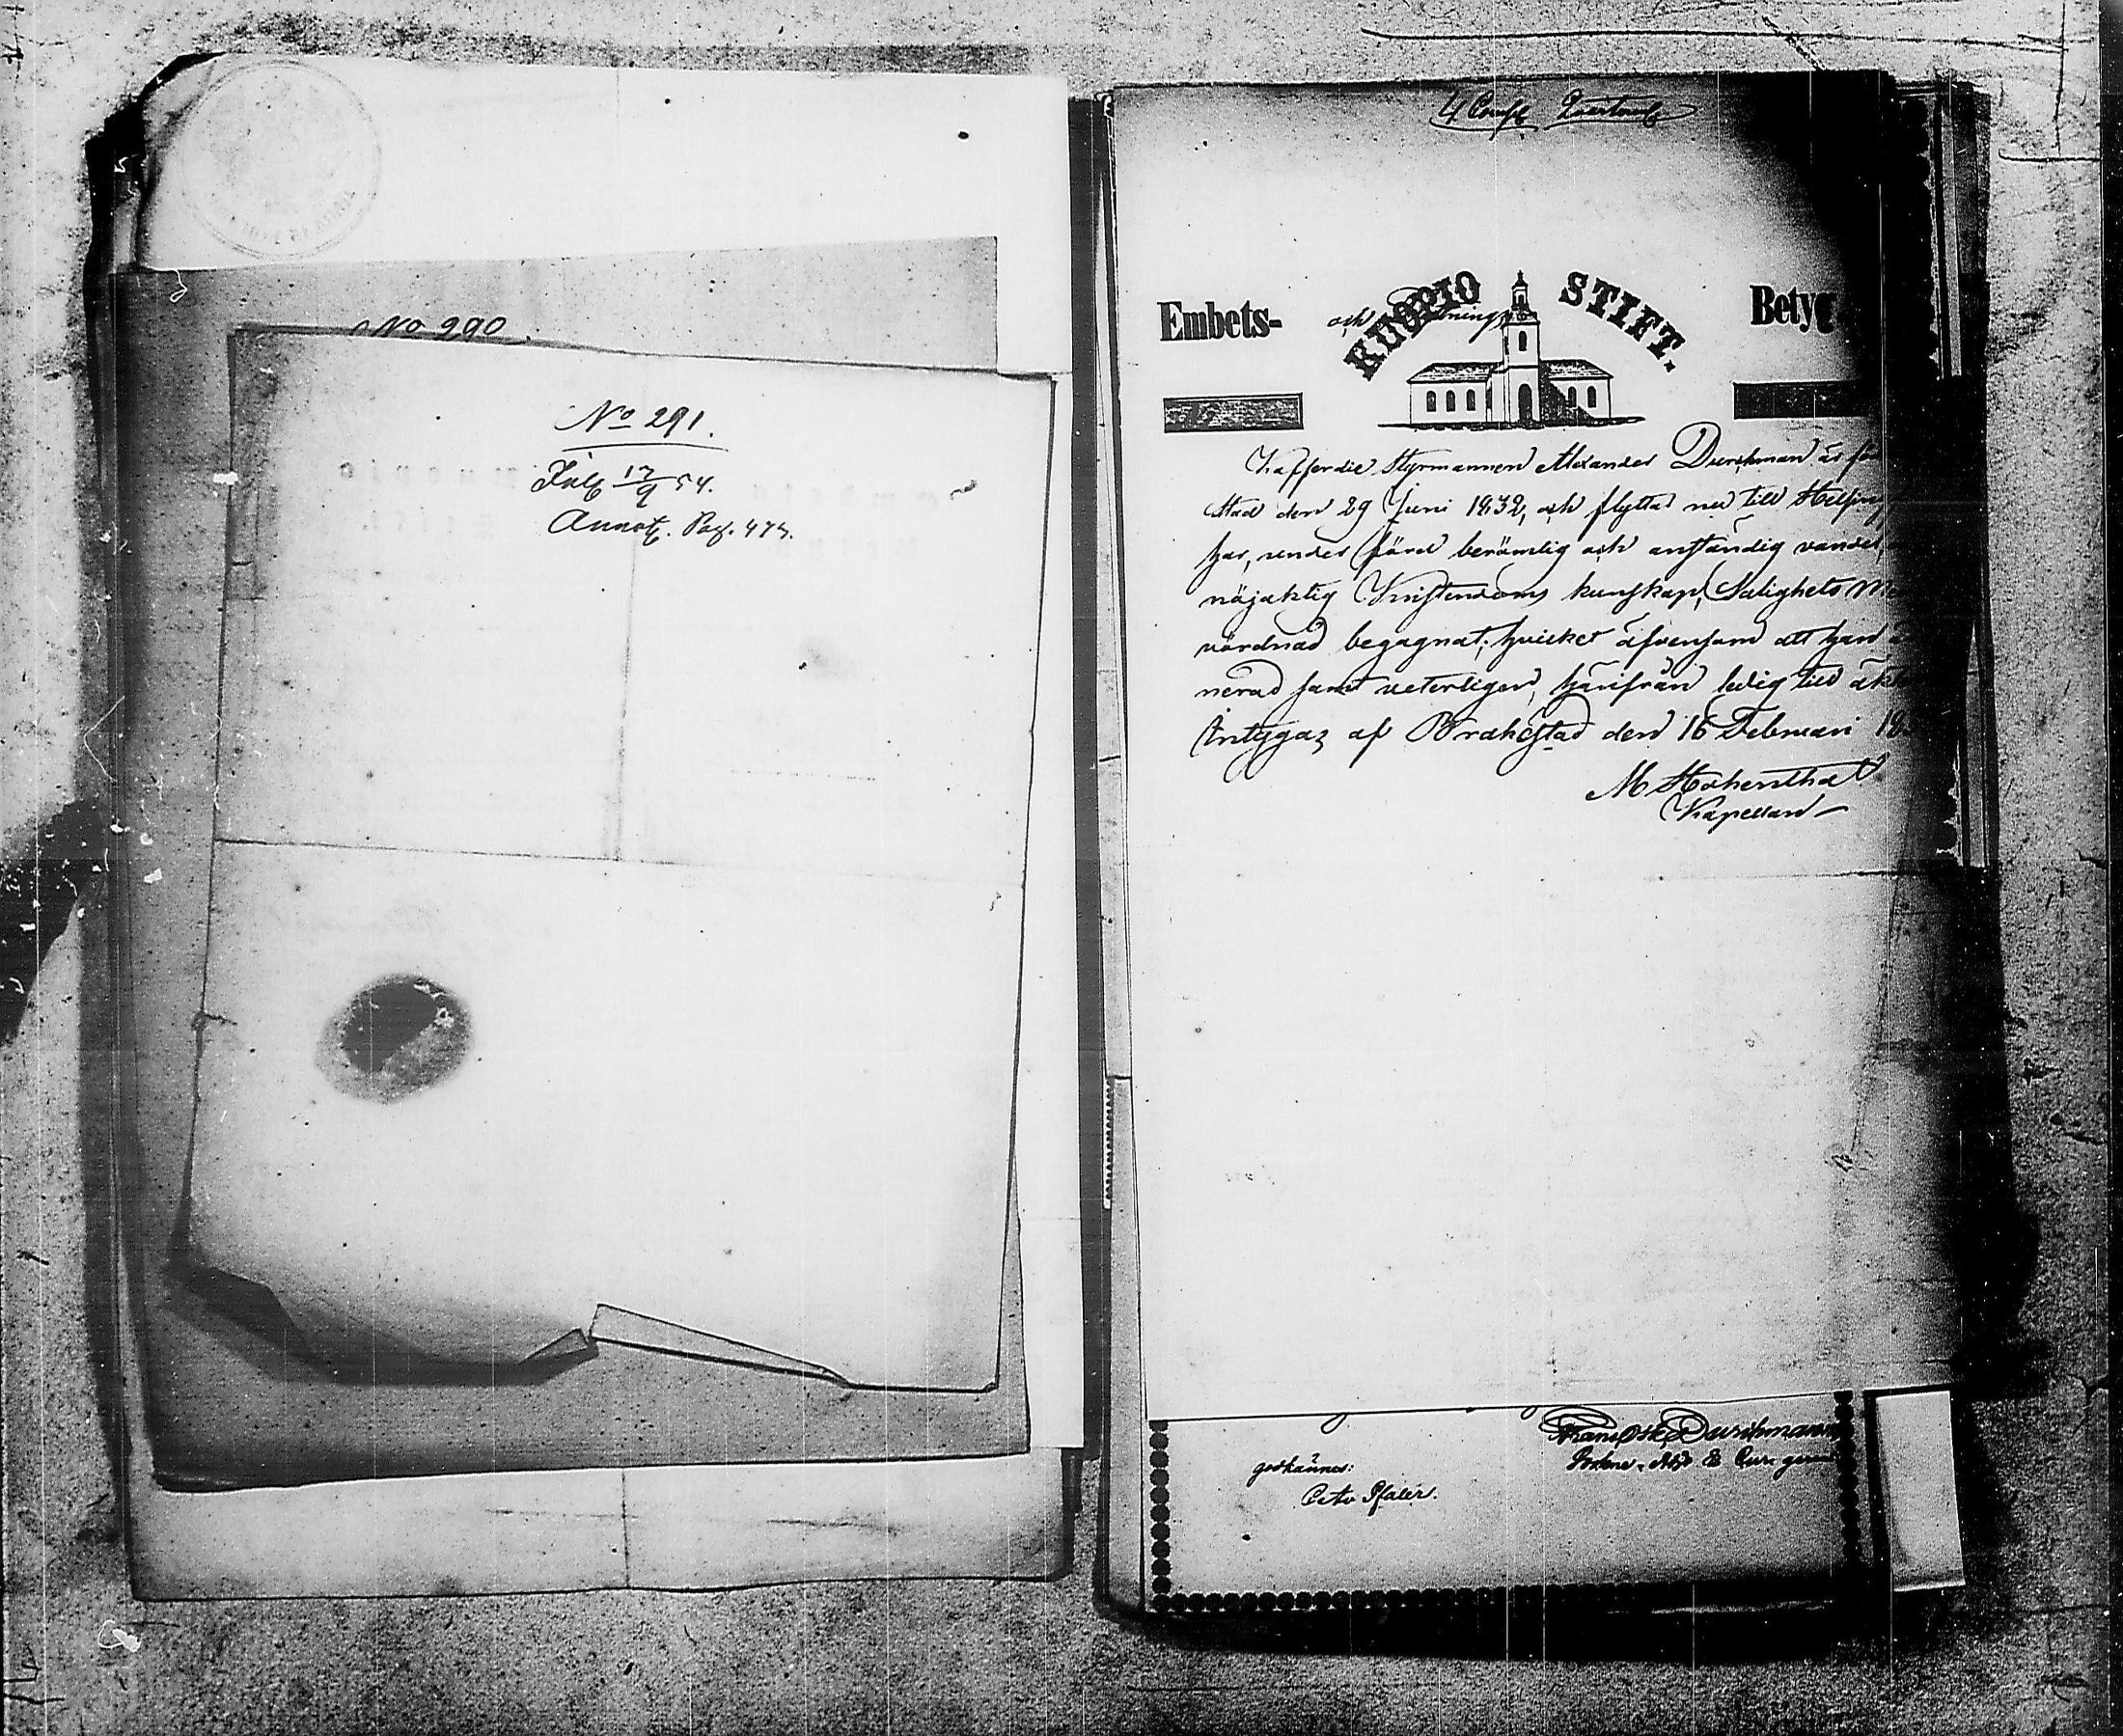 No 290.
No 291.
Inl. 17/9 54.
Annot. Pag. 473.
Embets- och KUOPIO STIFT. Bety
Kofferdie Styrmannen Alexander Durchman är fö
stad den 29 Juni 1832, och flyttad ned till Helsing
har, under förd berömlig och anständig vandel,
nöjaktig Kristendoms kunskap, Salighets me
vördnad begagnat; hvilket äfvensom att han
nerad samt veterligen, härifrån ledig till äkt
Intygas af Brahestad den 16 Februari 18
M Hohenthal
Kapellan
Frans Osk. Durchman
godkännes: